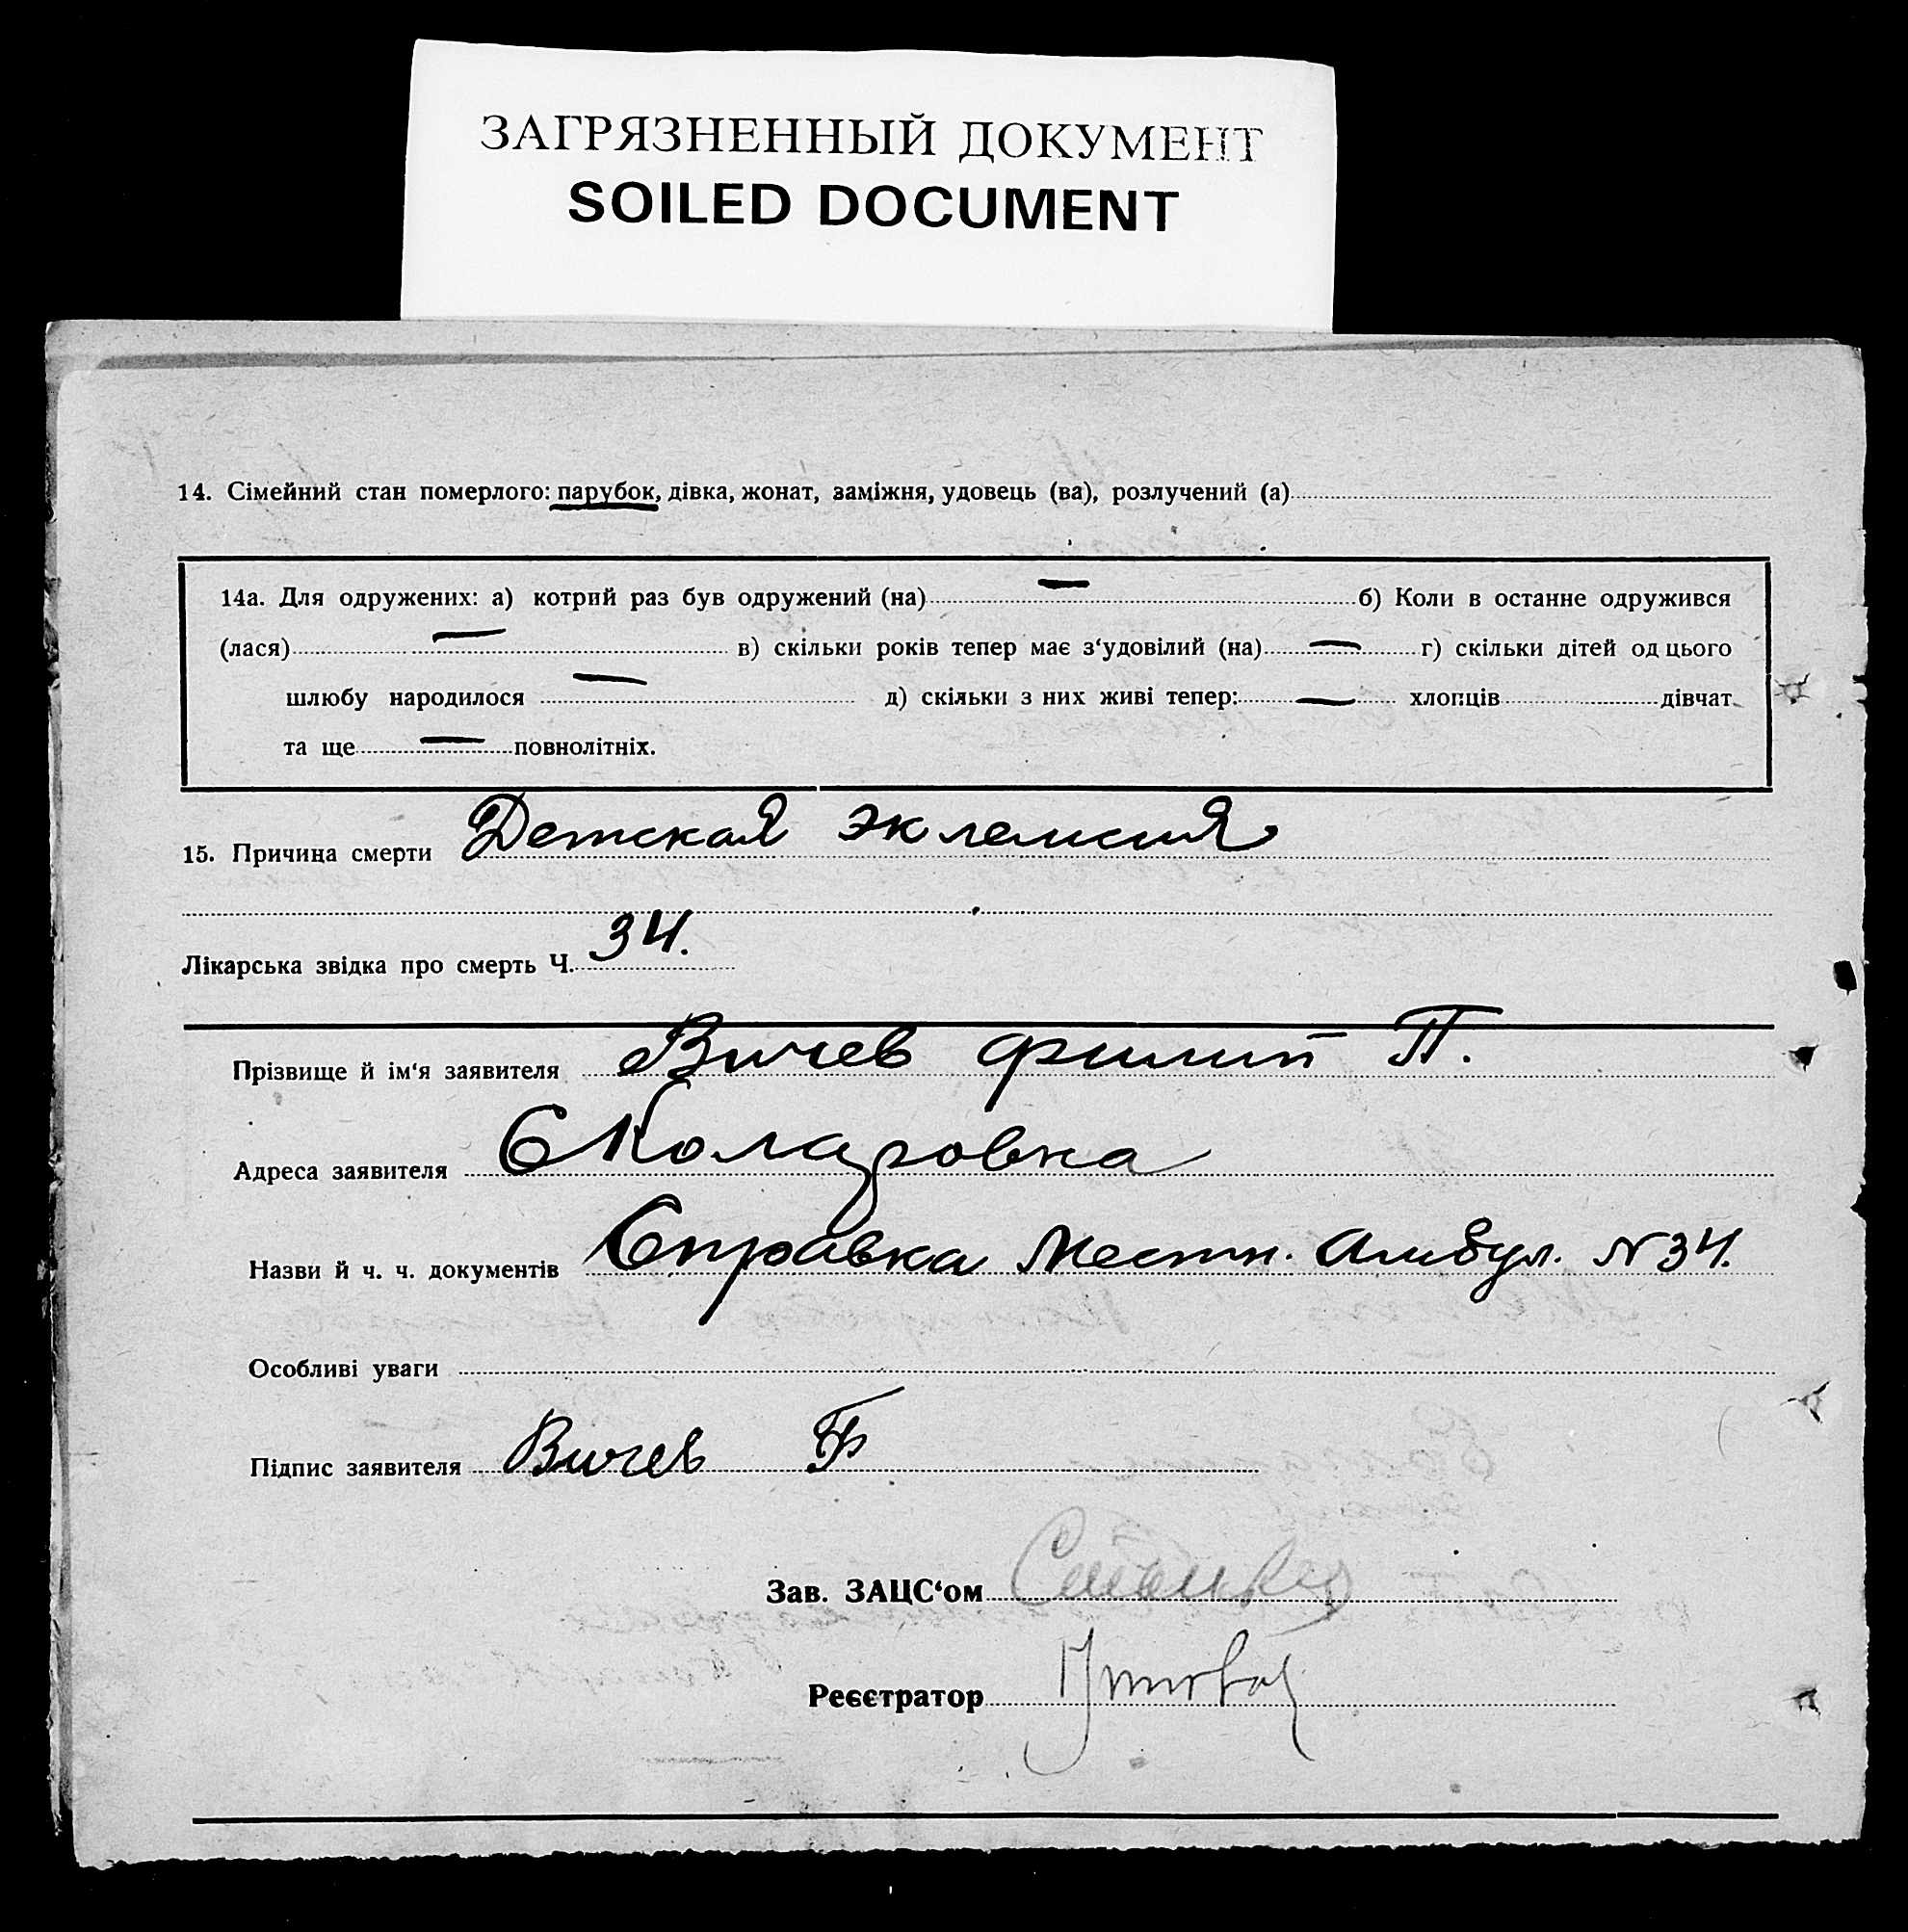 ЗАГРЯЗНЕННЫЙ ДОКУМЕНТ
SOILED DOCUMENT
14. Сімейний стан померлого: парубок, дівка, жонат, заміжня, удовець (ва), розлучений (а)
14а. Для одружених: а) котрий раз був одружений (на) — б) Коли в останне одружився
(лася) — в) скільки років тепер має з‘удовілий (на) — г) скільки дітей од цього
шлюбу народилося — д) скільки з них живі тепер: — хлопців дівчат
та ще — повнолітніх.
15. Причина смерти Детская эклемсия
Лікарська звідка про смерть Ч. 34.
Прізвище й ім‘я заявителя Вичев Филип П.
Адреса заявителя С Коларовка
Назви й ч. ч. документів Справка Местн. Амбул. N 34.
Особливі уваги
Підпис заявителя Вичев Ф
Зав. ЗАЦС‘ом
Реєстратор